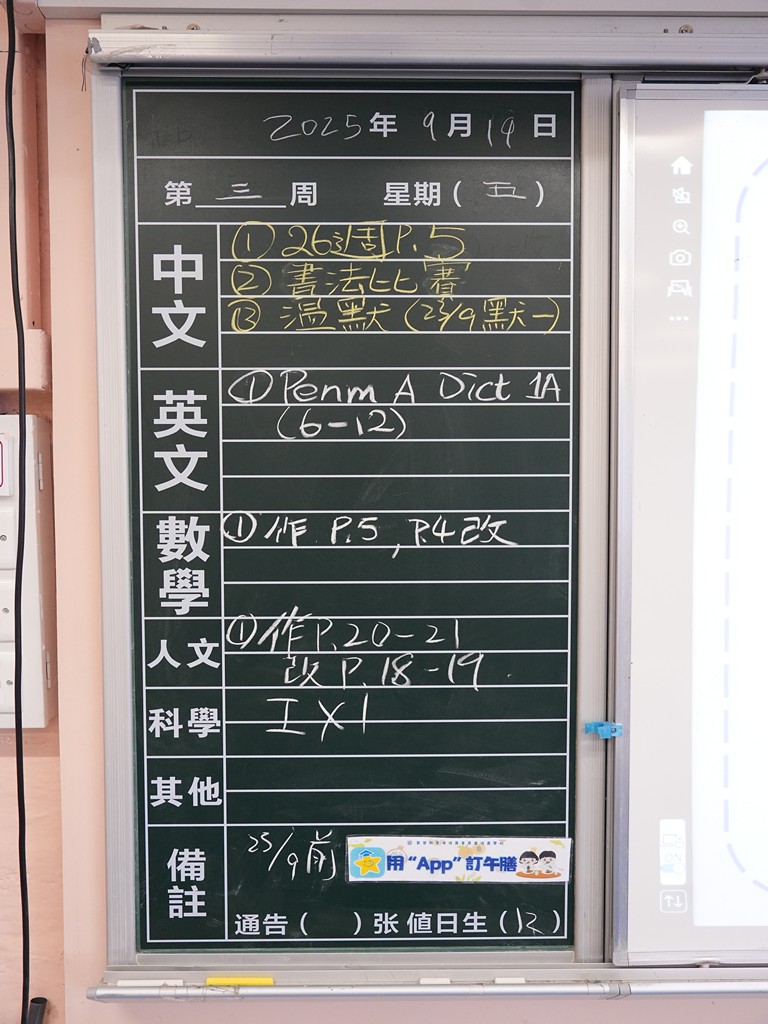 2025年 9月19日
第 三 周 星期(五)
中文
① 26週P.5
② 書法比賽
③ 溫默(23/9默一)
英文
① Penm A Dict 1A
(6-12)
數學
① 作 P.5, P.4改
人文
① 作P.20-21
改 P.18-19
科學
工X1
其他
備註
25/9前
用“App”訂午膳
通告( )张 值日生(12)